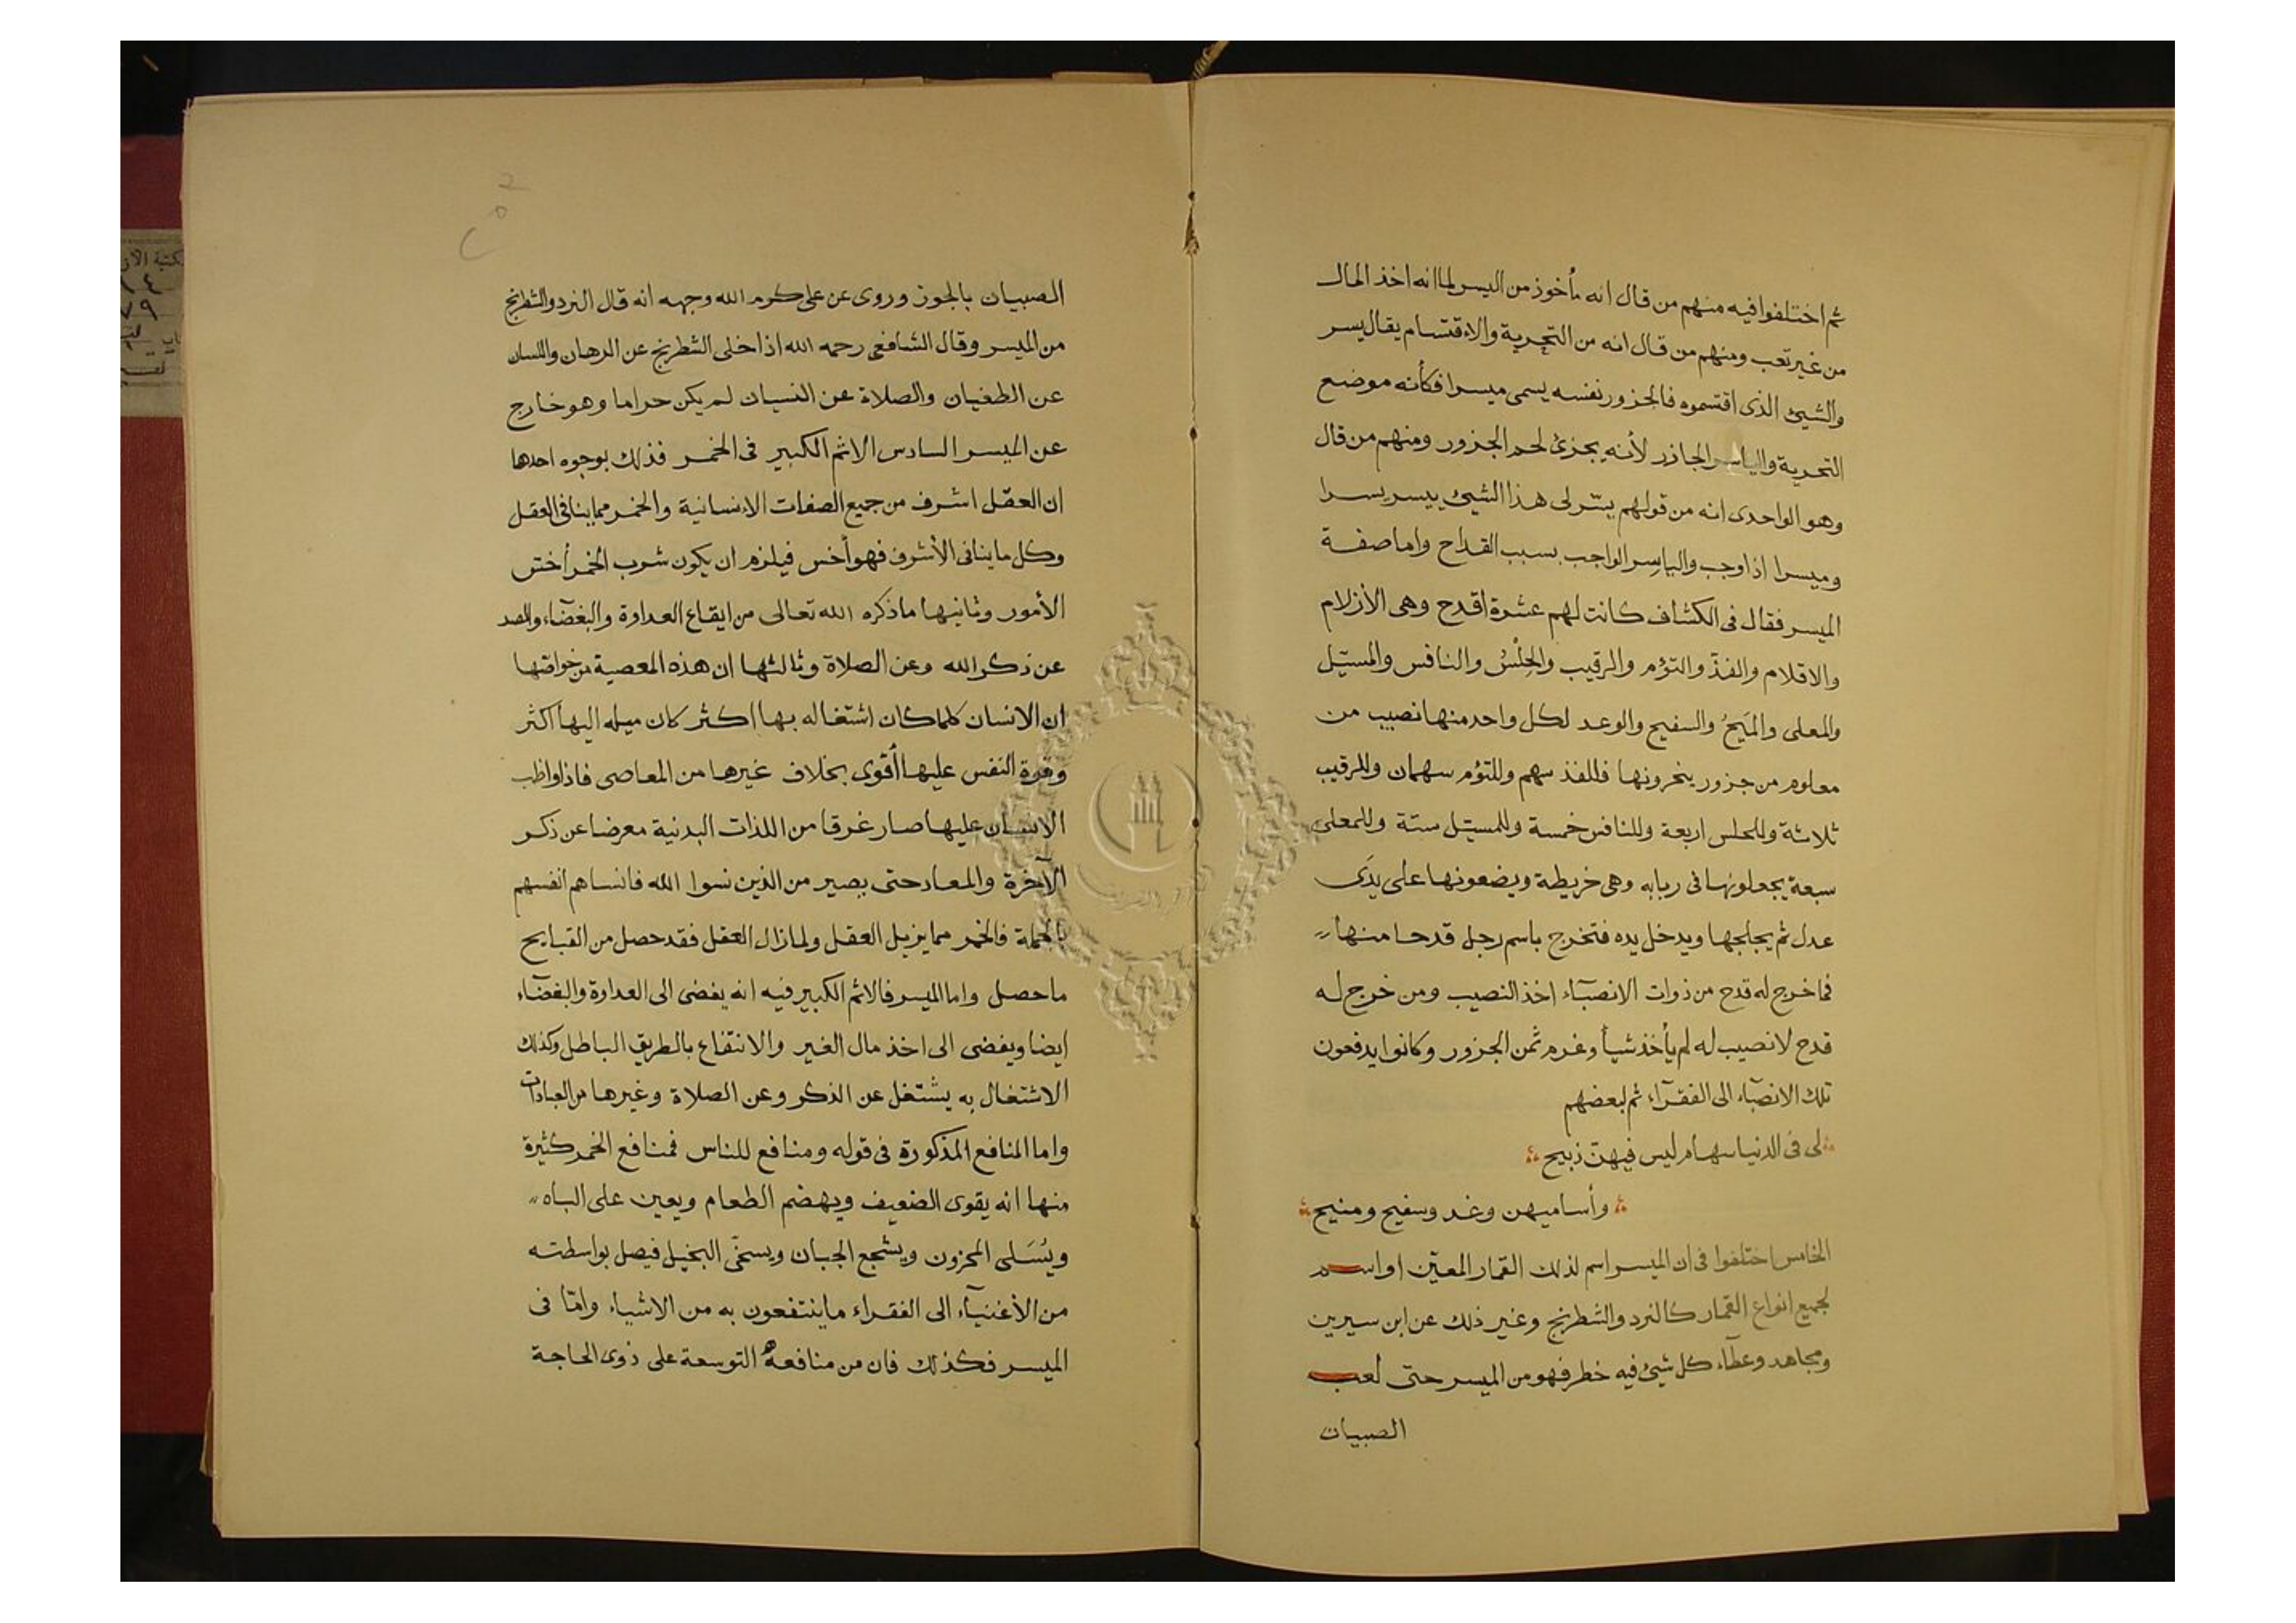 ثم اختلفوا فيه منهم من قال انه مأخوذ من اليسر لما انه اخذ المال
من غير تعب ومنهم من قال انه من التجرية والاقتسام يقال يسر
والشيئ الذى اقتسموه فالجزور نفسه يسمى ميسرا فكأنه موضع
التجرية والياسر الجازر لأنه يجزئ لحم الجزور ومنهم من قال
وهو الواحدى انه من قولهم يسّر لى هذا الشيئ ييسر يسرا
وميسرا اذا وجب والياسر الواجب بسبب القداح واما صفة
الميسر فقال فى الكشاف كانت لهم عشرة اقدح وهى الأزلام
والاقلام والفذّ والتؤم والرقيب والحِلْسُ والنافس والمسبّل
والمعلى والمَيحُ والسفيح والوعد لكل واحد منها نصيب من
معلوم من جزور ينحرونها فللفذ سهم وللتؤم سهمان وللرقيب
ثلاثة وللحلس اربعة وللنافس خمسة وللمسبّل ستة وللمعلى
سبعة يجعلونها فى ربابه وهى خريطة ويضعونها على يدَى
عدل ثم يجلجها ويدخل يده فتخرج باسم رجل قدحا منها
فما خرج له قدح من ذوات الانصبآء اخذ النصيب ومن خرج له
قدح لا نصيب له لم يأخذ شيأ وغرم ثمن الجزور وكانوا يدفعون
تلك الانصبآء الى الفقرآء ثم لبعضهم
لى فى الدنيا سهام ليس فيهنّ ذبيح
وأساميهن وغد وسفيح ومنيح
الخامس اختلفوا فى ان الميسر اسم لذلك القمار المعيّن او اسم
لجميع انواع القمار كالنرد والشطرنج وغير ذلك عن ابن سيرين
ومجاهد وعطآء كل شيئ فيه خطر فهو من الميسر حتى لعب
الصبيان
الصبيان بالجوز وروى عن على كرم الله وجهه انه قال النرد والشطرنج
من الميسر وقال الشافعى رحمه الله اذا خلى الشطرنج عن الرهان واللسان
عن الطغيان والصلاة عن النسيان لم يكن حراما وهو خارج
عن الميسر السادس الاثم الكبير فى الخمر فذلك بوجوه احدها
ان العقل اشرف من جميع الصفات الانسانية والخمر مما ينافى العقل
وكل ما ينافى الأشرف فهو أخس فيلزم ان يكون شرب الخمر أخسّ
الأمور وثانيها ما ذكره الله تعالى من ايقاع العداوة والبغضآء والصد
عن ذكر الله وعن الصلاة وثالثها ان هذه المعصية من خواصّها
ان الانسان كلما كان اشتغاله بها اكثر كان ميله اليها أكثر
وقوة النفس عليها أقوى بخلاف غيرها من المعاصى فاذا واظب
الانسان عليها صار غرقا من اللذات البدنية معرضا عن ذكر
الآخرة والمعاد حتى يصير من الذين نسوا الله فانساهم انفسهم
بالجملة فالخمر مما يزيل العقل ولما زال العقل فقد حصل من القبايح
ما حصل واما الميسر فالاثم الكبير فيه انه يفضى الى العداوة والبغضآء
ايضا ويفضى الى اخذ مال الغير والانتفاع بالطريق الباطل وكذلك
الاشتغال به يشتغل عن الذكر وعن الصلاة وغيرها من العبادات
واما المنافع المذكورة فى قوله ومنافع للناس فمنافع الخمر كثيرة
منها انه يقوى الضعيف ويهضم الطعام ويعين على الباه
ويُسَلى المحزون ويشجع الجبان ويسخّى البخيل فيصل بواسطته
من الأغنيآء الى الفقراء ما ينتفعون به من الاشياء وامّا فى
الميسر فكذلك فان من منافعه التوسعة على ذوى الحاجة